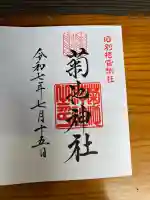 旧別格官幣社
菊池神社
令和七年七月十五日